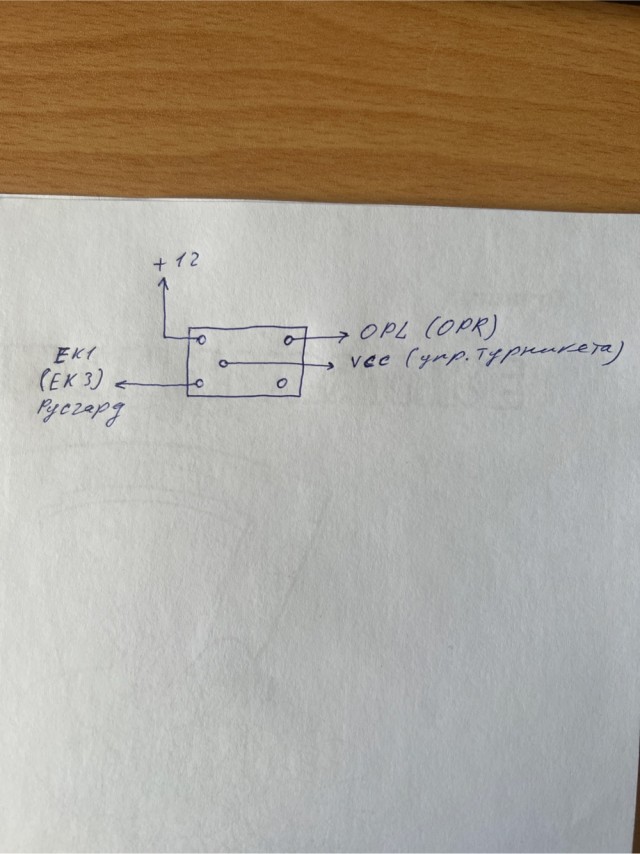 + 12
OPL (OPR)
VCC (упр. турникета)
ЕК1
(ЕК3)
Русгард